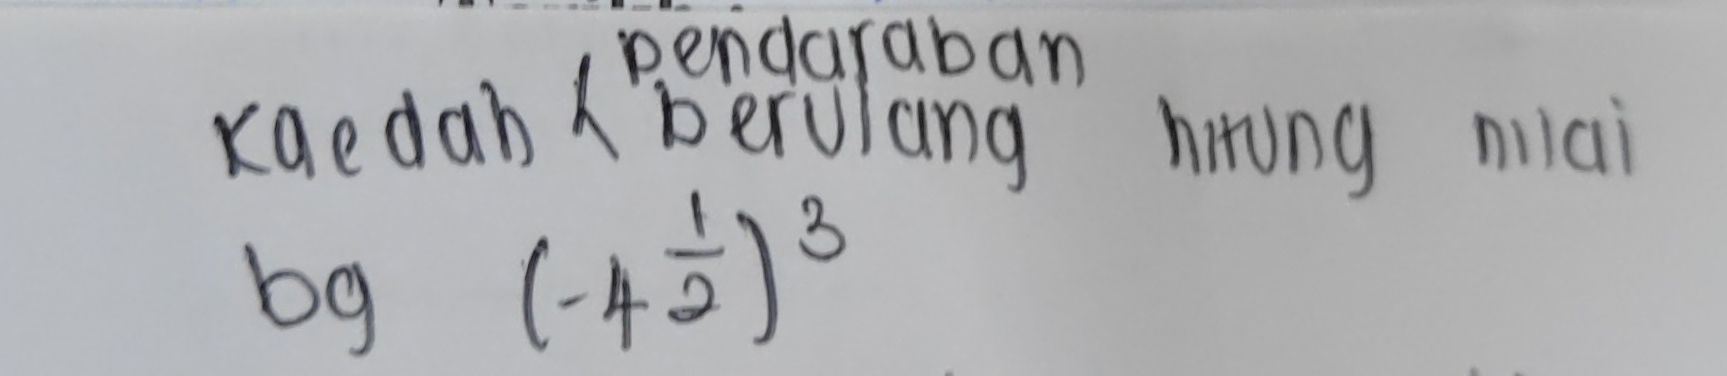 pendaraban
kaedah { berulang hitung nilai
bg (-4 1/2)³